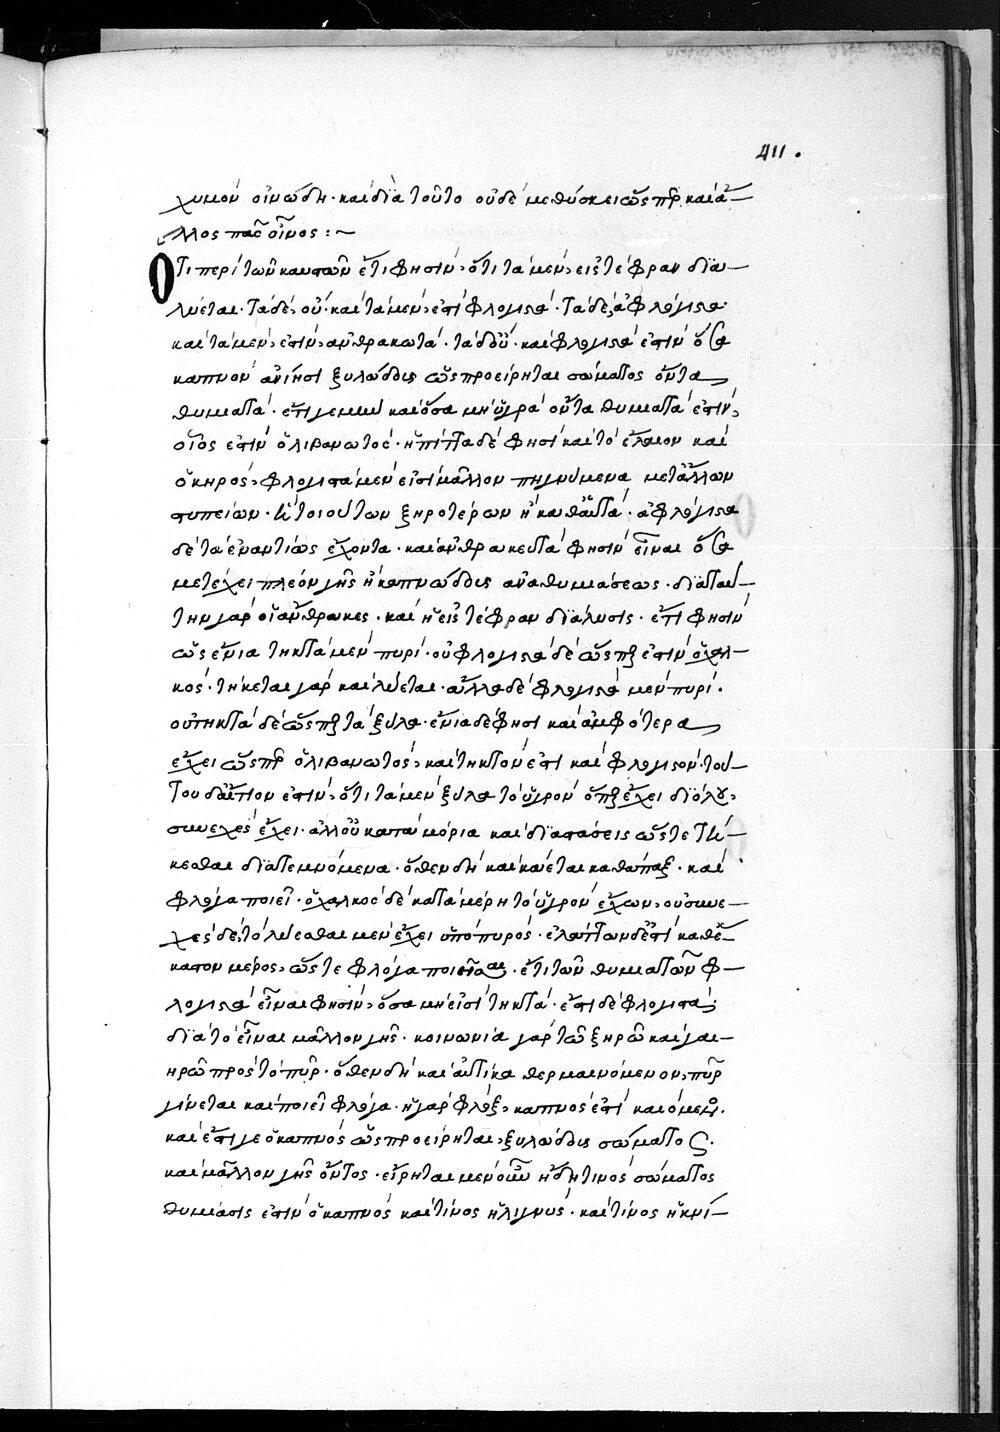 411.
χυμὸν οἰνώδη· καὶ διὰ τοῦτο οὐδὲ μεθύσκει ὥσπερ καὶ ἄ–
λλος πᾶς οἶνος :~
Ὅτι περὶ τῶν καυστῶν ἔτι φησίν, ὅτι τὰ μὲν, εἰς τέφραν δϊα–
λύεται· τὰ δὲ, οὔ· καὶ τὰ μὲν, ἐστὶ φλογιστά· τὰ δὲ, ἀφλόγιστα·
καὶ τὰ μὲν, ἐστὶν, ἀνθρακωτά· τὰ δ' οὔ· καὶ φλογιστά ἐστὶν ὅσα
καπνὸν ἀνίησι ξυλώδους ὡς προείρηται σώματος ὄντα
θυμιατά· ἔτι γε μὴν καὶ ὅσα μὴ ὑγρὰ ὄντα θυμιατά ἐστίν,
οἷός ἐστιν ὁ λιβανωτός· ἡ πίττα δέ φησι καὶ τὸ ἔλαιον καὶ
ὁ κηρός, φλογιστὰ μέν εἰσι μᾶλλον πηγνύμενα μετ' ἄλλων
στυπείων· ἢ τοιούτων ξηροτέρων ἢ καθ' αὑτά· ἀφλόγιστα
δὲ τὰ ἐναντίως ἔχοντα· καὶ ἀνθρακευτὰ φησὶν εἶναι ὅσα
μετέχει πλέον γῆς ἢ καπνώδους ἀναθυμιάσεως· διὰ ταύ–
την γὰρ οἱ ἄνθρακες· καὶ ἡ εἰς τέφραν δϊάλυσις· ἔτι φησὶν
ὡς ἔνια τηκτὰ μὲν πυρί· οὐ φλογιστὰ δὲ ὥσπερ ἐστὶν ὁ χαλ–
κός· τήκεται γὰρ καὶ λύεται· ἄλλα δὲ φλογιστὰ μὲν πυρί·
οὐ τηκτὰ δὲ ὥσπερ τὰ ξύλα· ἔνια δέ φησι καὶ ἀμφότερα
ἔχει ὥσπερ ὁ λιβανωτός, καὶ τηκτόν ἐστι καὶ φλογιστόν· τού–
του δ' αἴτιον ἐστὶν, ὅτι τὰ μὲν ξύλα τὸ ὑγρὸν ὅπερ ἔχει δι' ὅλου,
συνεχὲς ἔχει· ἀλλ' οὐ κατὰ μόρια καὶ δϊαστάσεις ὥστε τή–
κεσθαι δϊατεμνόμενα· ὅθεν δὴ καὶ καίεται καθάπαξ· καὶ
φλόγα ποιεῖ· ὁ χαλκὸς δὲ κατὰ μέρη τὸ ὑγρὸν ἔχων, οὐ συνε–
χὲς δέ, τὸ λύεσθαι μὲν ἔχει ὑπὸ πυρός· ἐλάττων δ' ἐστὶ καθ' ἕ–
καστον μέρος, ὥστε φλόγα ποιῆσαι· ἔτι τῶν θυμιατῶν φ–
λογιστὰ εἶναι φησίν, ὅσα μή εἰσι τηκτά· ἔστι δὲ φλογιστά,
δϊὰ τὸ εἶναι μᾶλλον γῆς· κοινωνία γὰρ τῷ ξηρῷ καὶ γαι–
ηρῷ πρὸς τὸ πῦρ· ὅθεν δὴ καὶ αὐτίκα θερμαινόμενον, πῦρ
γίνεται καὶ ποιεῖ φλόγα· ἡ γὰρ φλὸξ, καπνός ἐστι καιόμενος·
καὶ ἔστι γε ὁ καπνὸς ὡς προείρηται, ξυλώδους σώματος·
καὶ μᾶλλον γῆς ὄντος· εἴρηται μὲν οὖν ἤδη τινὸς σώματος
θυμίασις ἐστὶν ὁ καπνὸς καὶ τίνος ἡ λιγνύς· καὶ τίνος ἡ κνί–